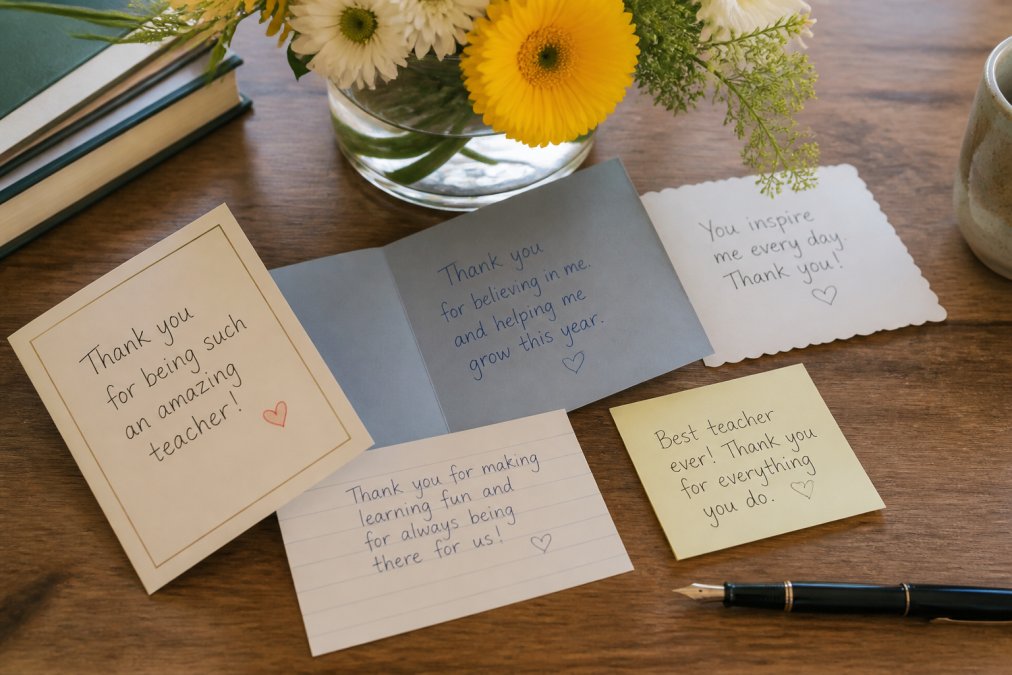 Thank you
for being such
an amazing
teacher!
Thank you
for believing in me.
and helping me
grow this year.
You inspire
me every day.
Thank you!
Thank you for making
learning fun and
for always being
there for us!
Best teacher
ever! Thank you
for everything
you do.